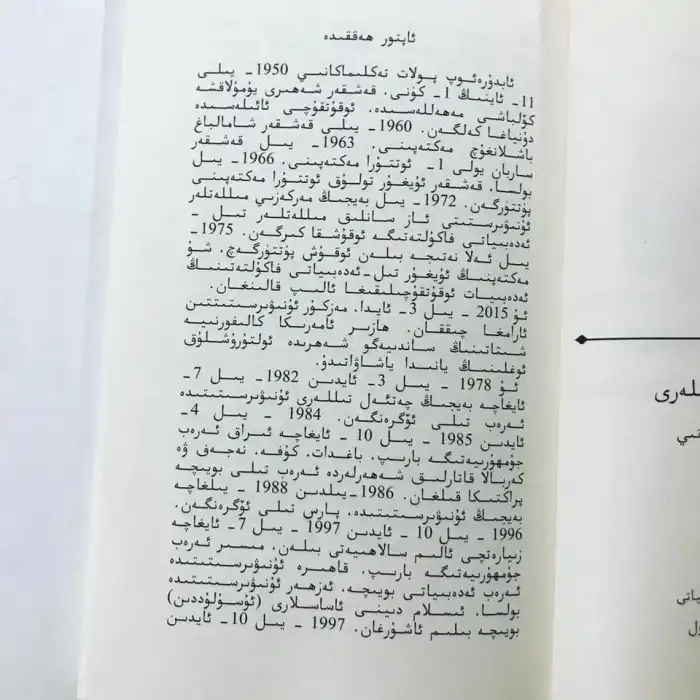 ئاپتور ھەققىدە
ئابدۇرەئوپ پولات تەكلىماكانىي 1950 ـ يىلى
11 ـ ئاينىڭ 1 ـ كۈنى، قەشقەر شەھىرى يۇمۇلاقشە
كۆلبېشى مەھەللەسىدە، ئوقۇتقۇچى ئائىلىسىدە
دۇنياغا كەلگەن. 1960 ـ يىلى قەشقەر شامالباغ
باشلانغۇچ مەكتەپىنى، 1963 ـ يىل قەشقەر
ساربان يولى 1 ـ ئوتتۇرا مەكتەپىنى، 1966 ـ يىل
بولسا، قەشقەر ئۇيغۇر تولۇق ئوتتۇرا مەكتەپىنى
پۈتتۈرگەن. 1972 ـ يىل بەيجىڭ مەركەزىي مىللەتلەر
ئۇنىۋېرسىتىتى ئاز سانلىق مىللەتلەر تىل ـ
ئەدەبىياتى فاكۇلتەتىگە ئوقۇشقا كىرگەن. 1975 ـ
يىل ئەلا نەتىجە بىلەن ئوقۇش پۈتتۈرگەچ، شۇ
مەكتەپنىڭ ئۇيغۇر تىل ـ ئەدەبىياتى فاكۇلتەتىنىڭ
ئەدەبىيات ئوقۇتقۇچىلىقىغا ئالىپ قالىنغان.
ئۇ 2015 ـ يىل 3 ـ ئايدا، مەزكۇر ئۇنىۋېرسىتىتتىن
ئارامغا چىققان. ھازىر ئامەرىكا كالىفورنىيە
شىتاتىنىڭ ساندىيەگو شەھرىدە ئولتۇرۇشلۇق
ئوغلىنىڭ يانىدا ياشاۋاتىدۇ.
ئۇ 1978 ـ يىل 3 ـ ئايدىن 1982 ـ يىل 7 ـ
ئايغاچە بەيجىڭ چەتئەل تىللەرى ئۇنىۋېرسىتىتىدە
ئەرەب تىلى ئۆگرەنگەن. 1984 ـ يىل 4 ـ
ئايدىن 1985 ـ يىل 10 ـ ئايغاچە ئىراق ئەرەب
جۇمھۇرىيەتىگە بارىپ، باغدات، كۇفە، نەجەف ۋە
كەربالا قاتارلىق شەھەرلەردە ئەرەب تىلى بويىچە
پراكتىكا قىلغان. 1986 ـ يىلدىن 1988 ـ يىلغاچە
بەيجىڭ ئۇنىۋېرسىتىتىدە، پارس تىلى ئۆگرەنگەن.
1996 ـ يىل 10 ـ ئايدىن 1997 ـ يىل 7 ـ ئايغاچە
زىيارەتچى ئالىم سالاھىيەتى بىلەن، مىسىر ئەرەب
جۇمھۇرىيەتىگە بارىپ، قاھىرە ئۇنىۋېرسىتىتىدە
ئەرەب ئەدەبىياتى بويىچە، ئەزھەر ئۇنىۋېرسىتىتىدە
بولسا، ئىسلام دىينى ئاساسلارى (ئۇسۇلۇددىن)
بويىچە بىلىم ئاشۇرغان. 1997 ـ يىل 10 ـ ئايدىن